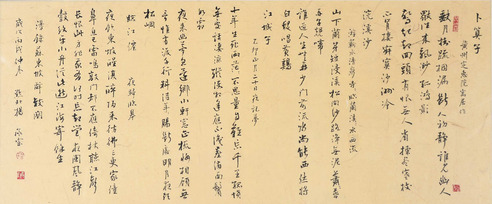 卜算子
黄州定慧院寓居作
缺月挂疏桐漏断人初静谁见幽人
独往来缥缈孤鸿影
惊起却回头有恨无人省拣尽寒枝
不肯栖寂寞沙洲冷
浣溪沙
游蕲水清泉寺寺临兰溪溪水西流
山下兰芽短浸溪松间沙路净无泥萧萧暮
雨子规啼
谁道人生无再少门前流水尚能西休将
白发唱黄鸡
江城子
乙卯正月二十日夜记梦
十年生死两茫茫不思量自难忘千里孤坟
无处话凄凉纵使相逢应不识尘满面鬓
如霜
夜来幽梦忽还乡小轩窗正梳妆相顾无
言惟有泪千行料得年年肠断处明月夜短
松冈
临江仙 夜归临皋
夜饮东坡醒复醉归来仿佛三更家童
鼻息已雷鸣敲门都不应倚杖听江声
长恨此身非我有何时忘却营营夜阑风静
縠纹平小舟从此逝江海寄余生
苏东坡词数阕